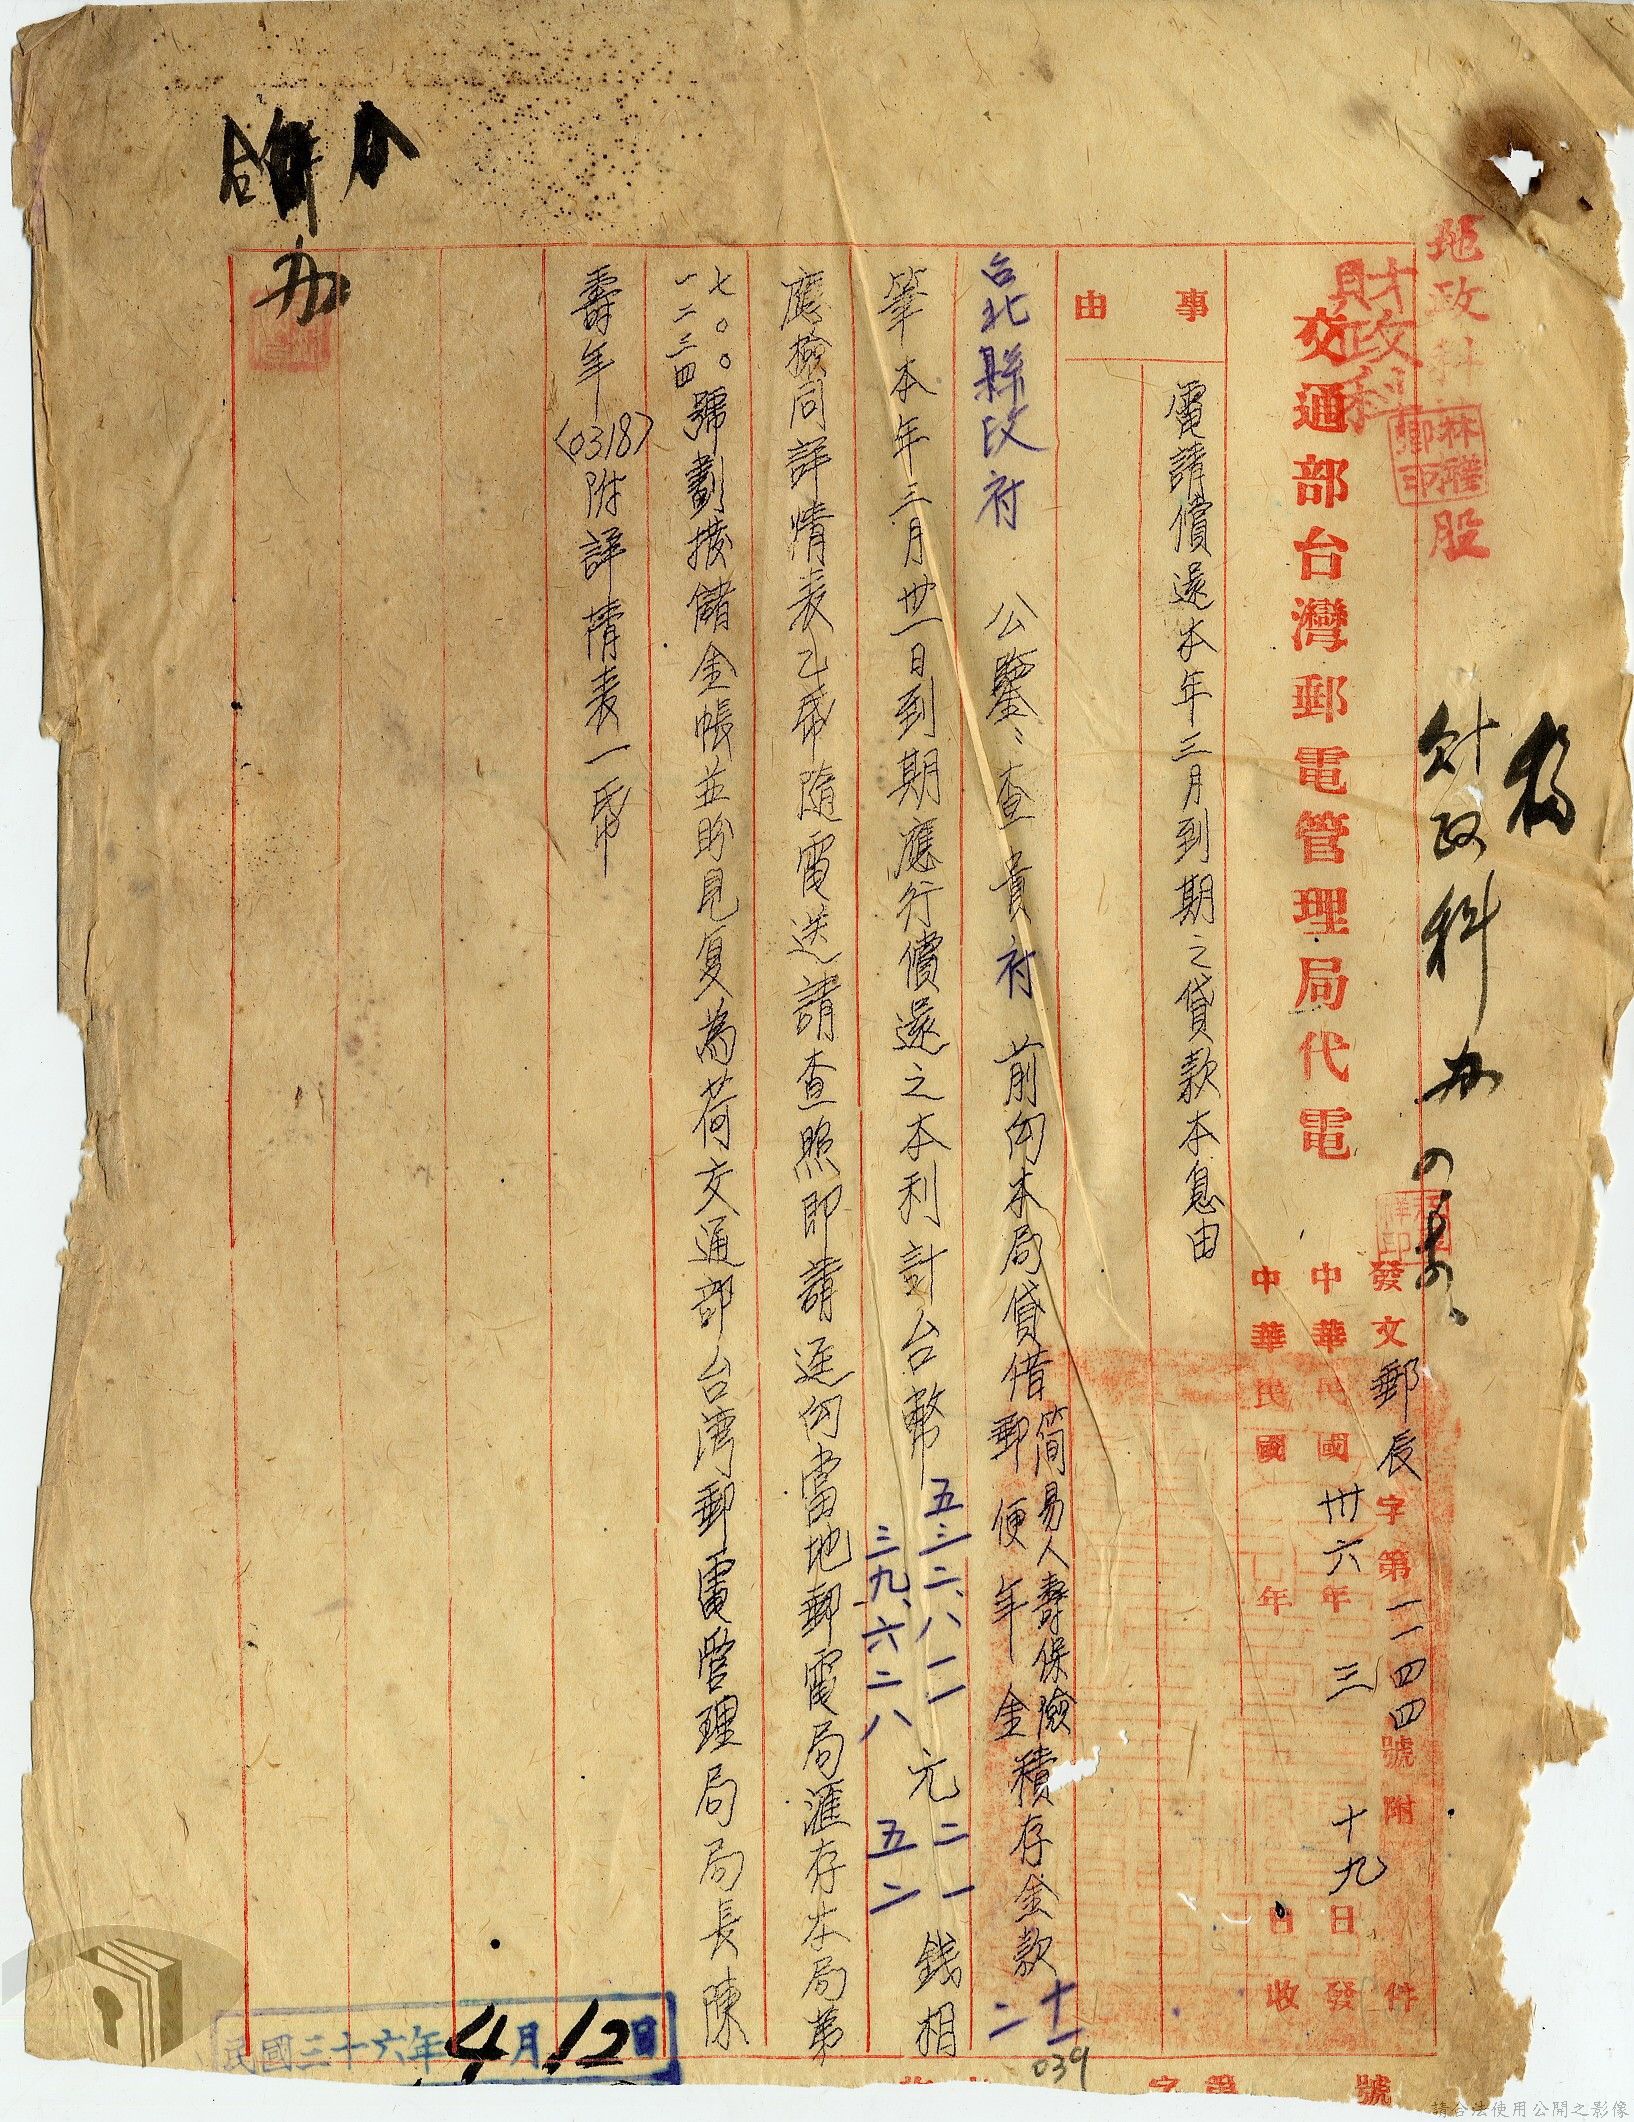 地政科 股
林
印
財政科
財政科 办
交通部台灣郵電管理局代電
發文郵辰字第一一四四號附 件
中華民國卅六年三 十九日發
中華民國 年 日收
事由
電請償還本年三月到期之貸款本息由
台北縣政府 公鑒:查 貴府 前向本局貸借簡易人壽保險郵便年金積存金款十一二
筆本年三月卅一日到期應行償還之本利計台幣五三二、八一一三九、六二八元二一五二錢相
應撥同詳情表乙帋隨電送請查照即請逕向當地郵電局滙存本局第
七〇〇一二三四號劃撥儲金帳並盼見复為荷交通部台湾郵電管理局局長陳
壽年(0318)附詳情表一帋
办
民國三十六年4月12日
039
字第 號
請合法使用公開之影像